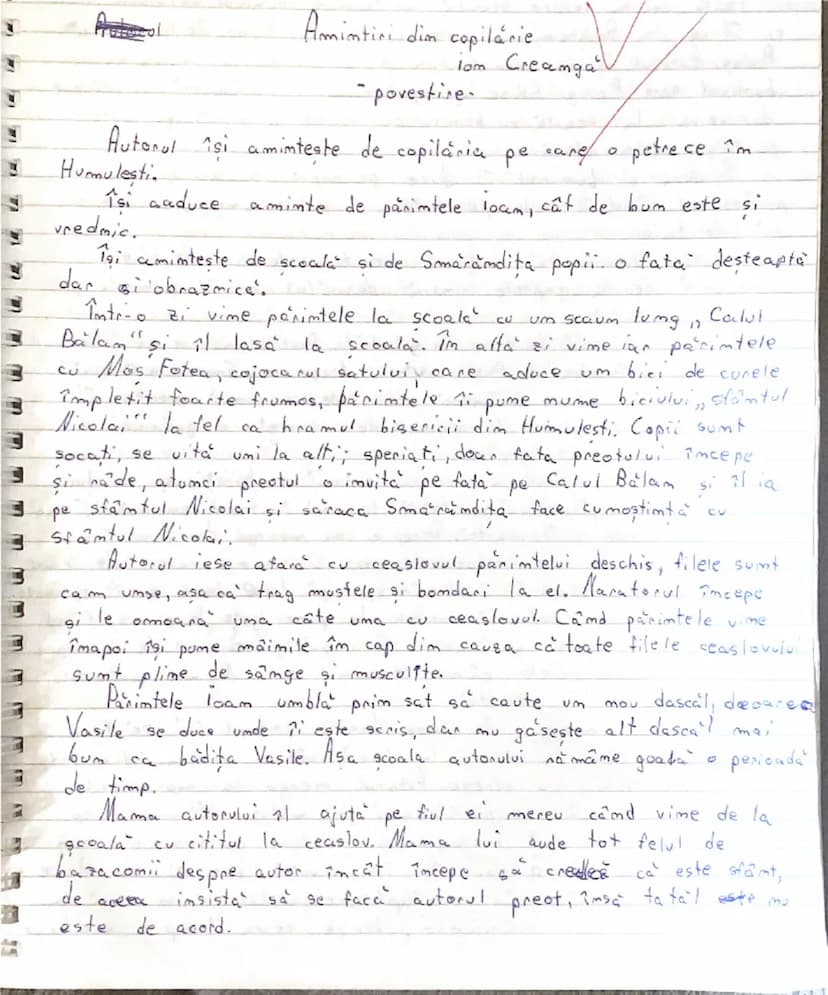 Amintiri din copilărie
Ion Creangă
- povestire -
Autorul își amintește de copilăria pe care o petrece în
Humulești.
Își aaduce aminte de părintele Ioan, cât de bun este și
vrednic.
Își amintește de școală și de Smărăndița popii. o fată deșteaptă
dar și obraznică.
Într-o zi vine părintele la școală cu un scaun lung „Calul
Bălan" și îl lasă la școală. În altă zi vine iar părintele
cu Moș Fotea, cojocarul satului, care aduce un bici de curele
împletit foarte frumos, părintele îi pune nume biciului „sfântul
Nicolai" la fel ca hramul bisericii din Humulești. Copii sunt
șocați, se uită unii la alții; speriați, doar fata preotului începe
și râde, atunci preotul o invită pe fată pe Calul Bălan și îl ia
pe sfântul Nicolai și săraca Smărăndița face cunoștință cu
sfântul Nicolai.
Autorul iese afară cu ceaslovul părintelui deschis, filele sunt
cam unse, așa că trag muștele și bondari la el. Naratorul începe
și le omoară una câte una cu ceaslovul. Când părintele vine
înapoi își pune mâinile în cap din cauza că toate filele ceaslovului
sunt pline de sânge și musculițe.
Părintele Ioan umblă prin sat să caute un nou dascăl, deoarece
Vasile se duce unde îi este scris, dar nu găsește alt dascăl mai
bun ca bădița Vasile. Așa școala autorului rămâne goală o perioadă
de timp.
Mama autorului îl ajută pe fiul ei mereu când vine de la
școală cu cititul la ceaslov. Mama lui aude tot felul de
bazaconii despre autor încât începe să creadă că este sfânt,
de aceea insistă să se facă autorul preot, însă tatăl nu
este de acord.